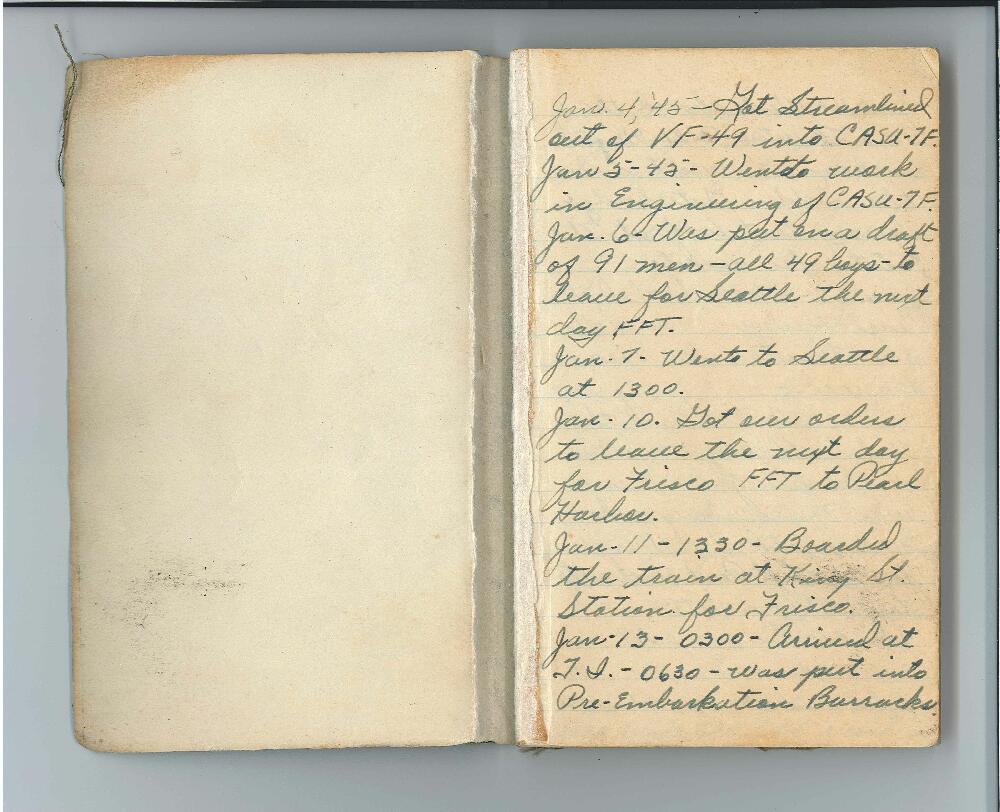 Jan. 4, 45 - Got Streamlined
out of VF-49 into CASU-7F.
Jan 5-45- Went to work
in Engineering of CASU-7F.
Jan. 6- Was put on a draft
of 91 men - all 49 boys - to
leave for Seattle the next
day FFT.
Jan. 7- Wents to Seattle
at 1300.
Jan. 10. Got our orders
to leave the next day
for Frisco FFT to Pearl
Harbor.
Jan-11-1330- Boarded
the train at King St.
Station for Frisco.
Jan-13- 0300- Arrived at
T.I. - 0630 - was put into
Pre-Embarkation Barracks.